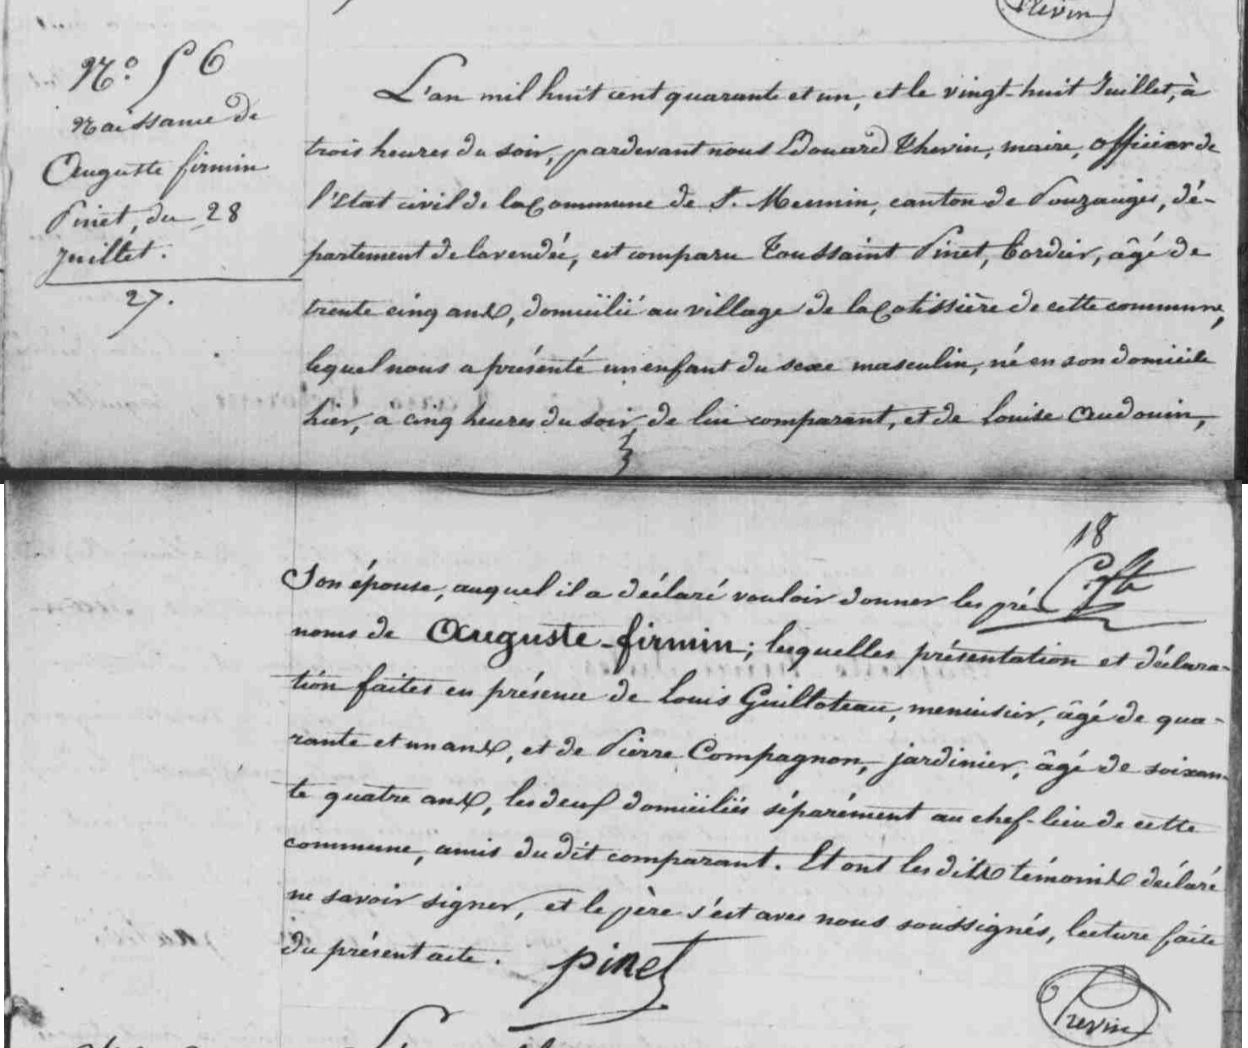 N.° 56
Naissance de
Auguste firmin
Pinet, du 28
Juillet.
27.
L'an mil huit cent quarante et un, et le vingt-huit Juillet, à
trois heures du soir, pardevant nous Edouard Thevin, maire, officier de
l'Etat civil de la Commune de S.t Mesmin, canton de Pouzauges, dé-
partement de la vendée, est comparu Toussaint Pinet, Cordier, âgé de
trente cinq ans, domicilié au village de la Cotissière de cette commune,
lequel nous a présenté un enfant du sexe masculin, né en son domicile
hier, a cinq heures du soir, de lui comparant, et de Louise Audouin,
18
Son épouse, auquel il a déclaré vouloir donner les pré
noms de Auguste-firmin; lesquelles présentation et déclara-
tion faites en présence de Louis Guilloteau, menuisier, âgé de qua-
rante et un ans, et de Pierre Compagnon, jardinier, âgé de soixan-
te quatre ans, les deux domiciliés séparément au chef-lieu de cette
commune, amis du dit comparant. Et ont les dits témoins déclaré
ne savoir signer, et le père s'est avec nous soussignés, lecture faite
du présent acte.
pinet